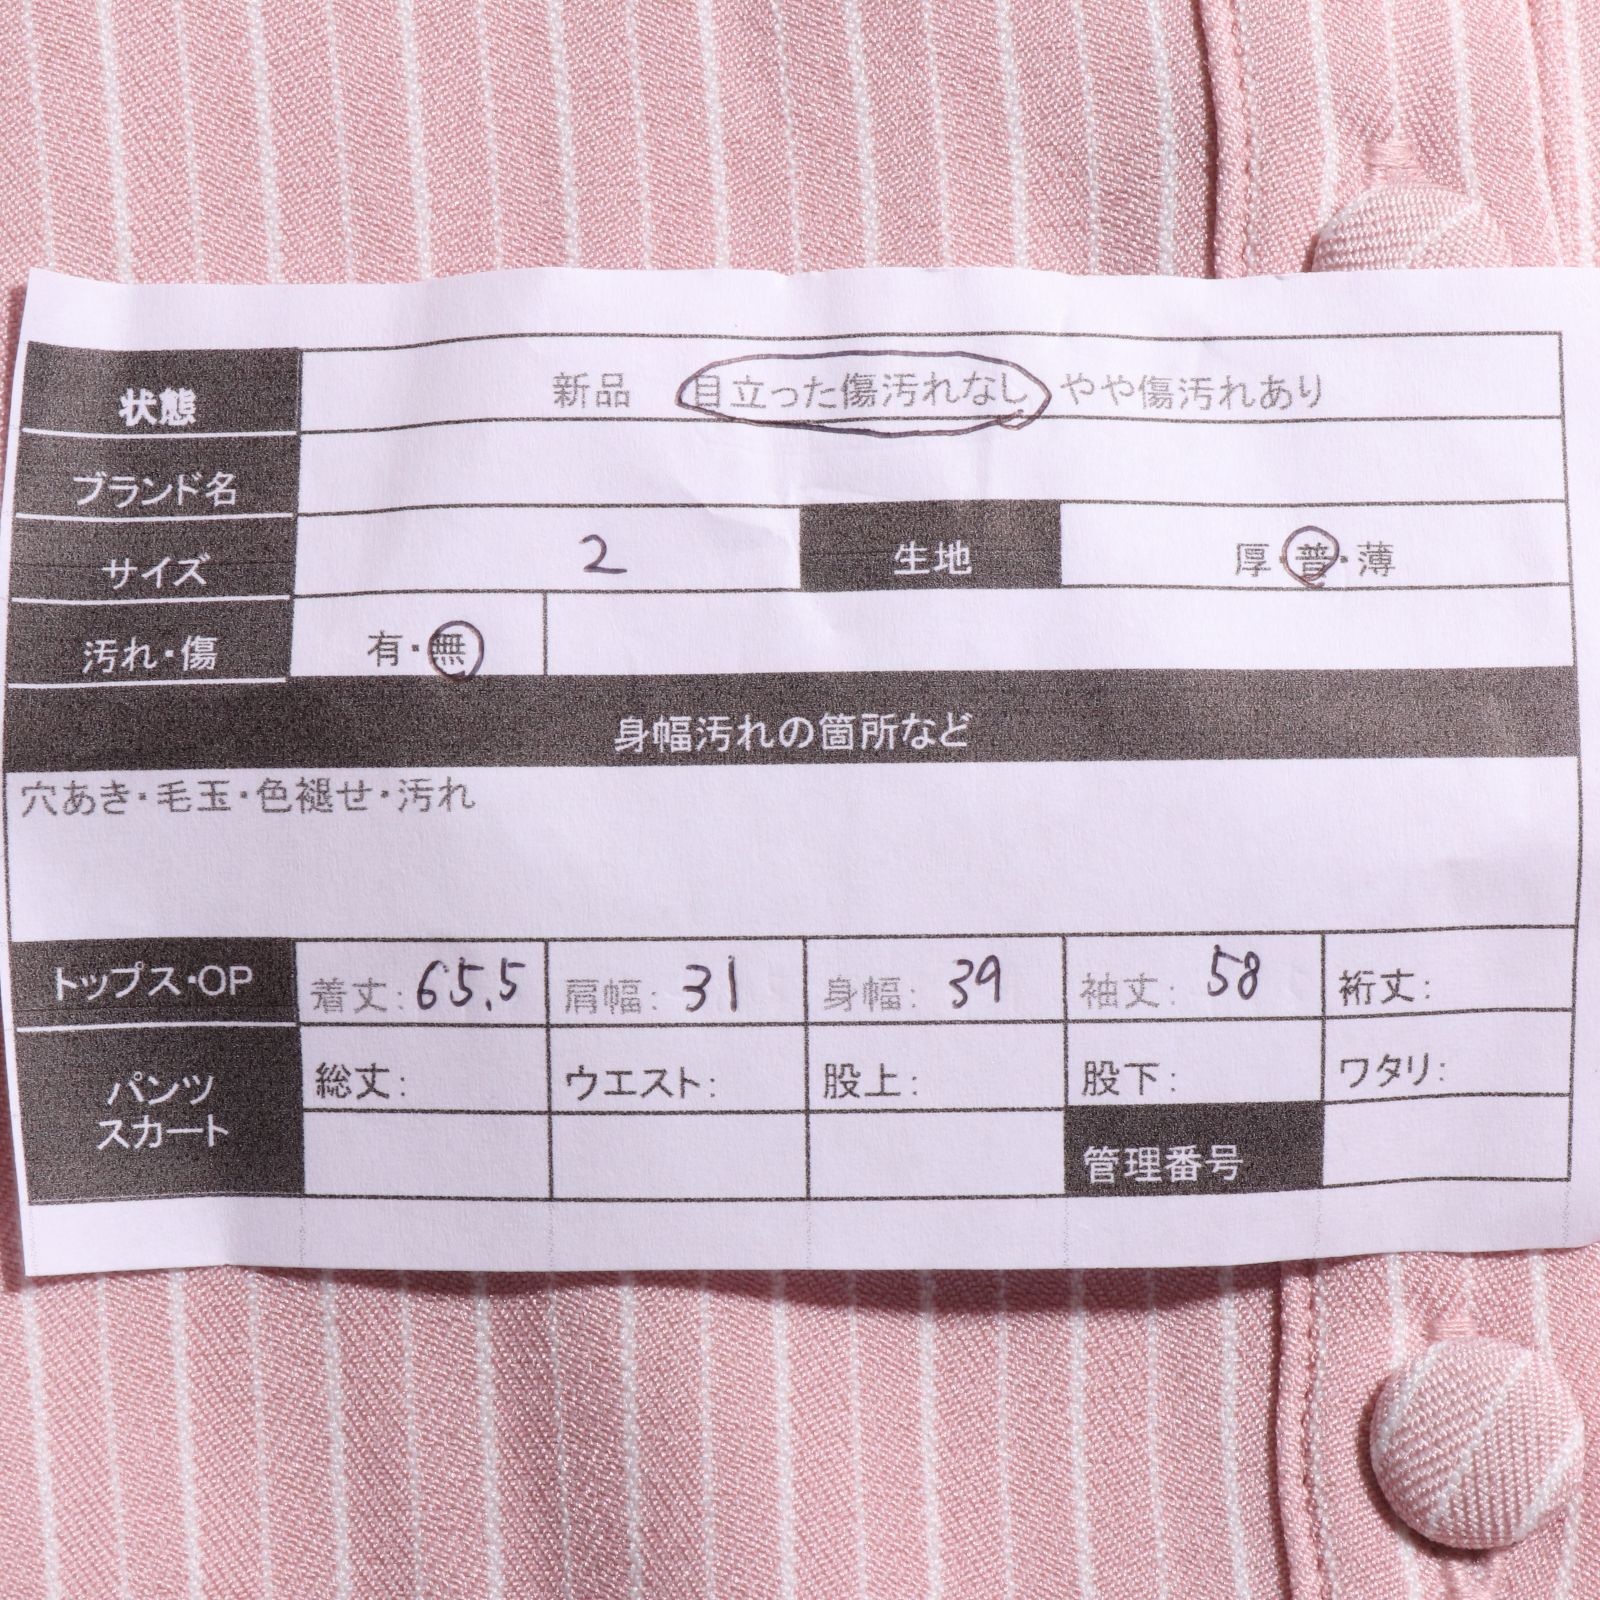 状態 新品 目立った傷汚れなし やや傷汚れあり
ブランド名
サイズ 2 生地 厚・普・薄
汚れ・傷 有・無
身幅汚れの箇所など
穴あき・毛玉・色褪せ・汚れ
トップス・OP 着丈: 65.5 肩幅: 31 身幅: 39 袖丈: 58 裄丈:
パンツ スカート 総丈: ウエスト: 股上: 股下: ワタリ:
管理番号